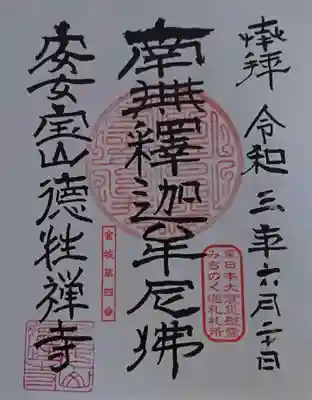 捧拝 令和三年六月二十日
南無釋迦牟尼佛
宝山德性禅寺
東日本大震災慰霊
みちのく巡礼札所
宮城第四番